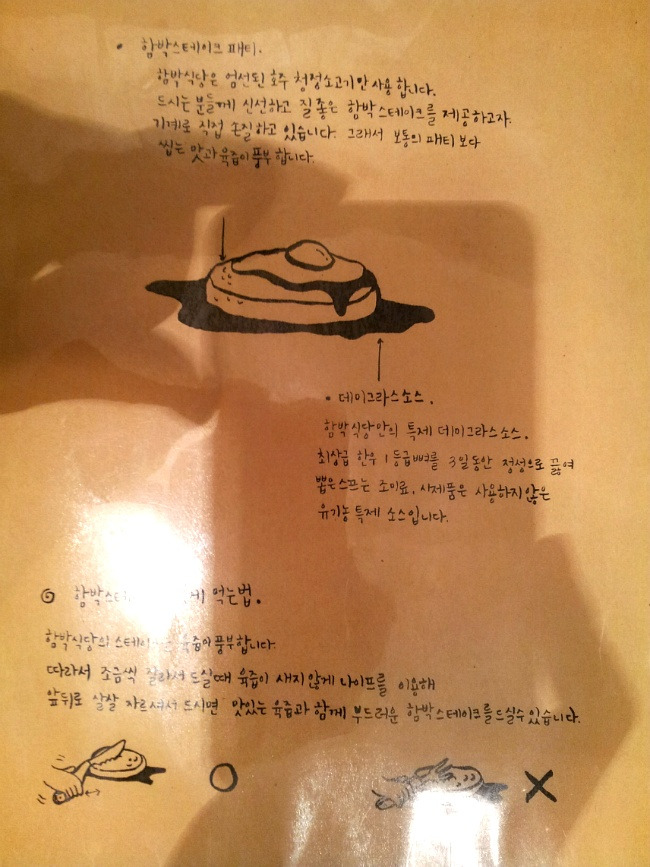 • 함박스테이크 패티.
함박식당은 엄선된 호주 청정소고기만 사용합니다.
드시는 분들께 신선하고 질 좋은 함박스테이크를 제공하고자
기계로 직접 손질하고 있습니다. 그래서 보통의 패티 보다
씹는 맛과 육즙이 풍부합니다.
• 데미그라스소스.
함박식당만의 특제 데미그라스소스.
최상급 한우 1등급뼈를 3일동안 정성으로 끓여
뽑은스프는 조미료, 시제품은 사용하지않은
유기농 특제 소스입니다.
함박스테 게 먹는법.
함박식당의 스테이 육즙이 풍부합니다.
따라서 조금씩 잘라서 드실때 육즙이 새지 않게 나이프를 이용해
앞뒤로 살살 자르셔서 드시면 맛있는 육즙과 함께 부드러운 함박스테이크를드실수있습니다.